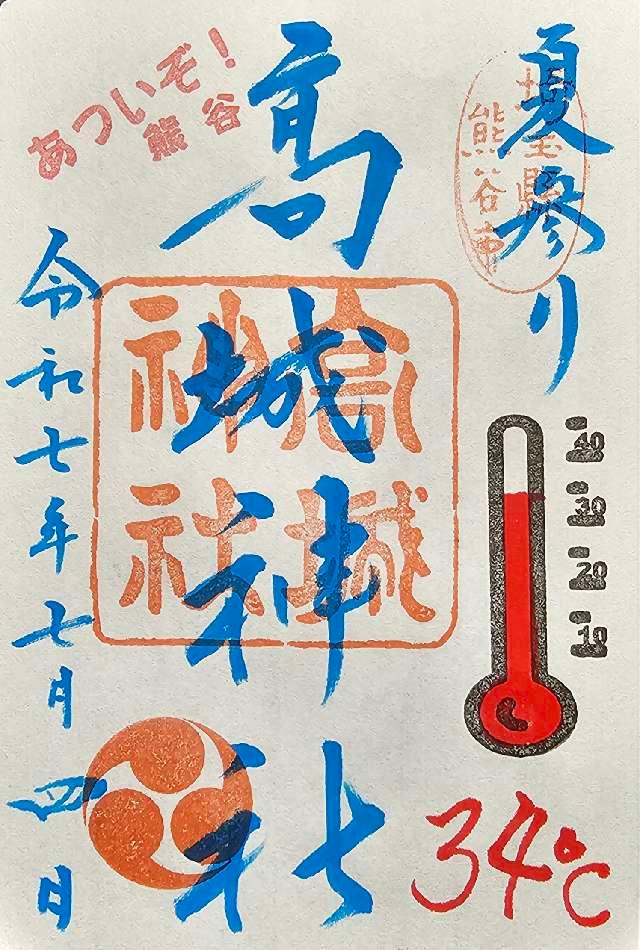 夏参り
埼玉縣
熊谷市
あついぞ！
熊谷
高城神社
高城
神社
令和七年七月四日
40
30
20
10
34℃